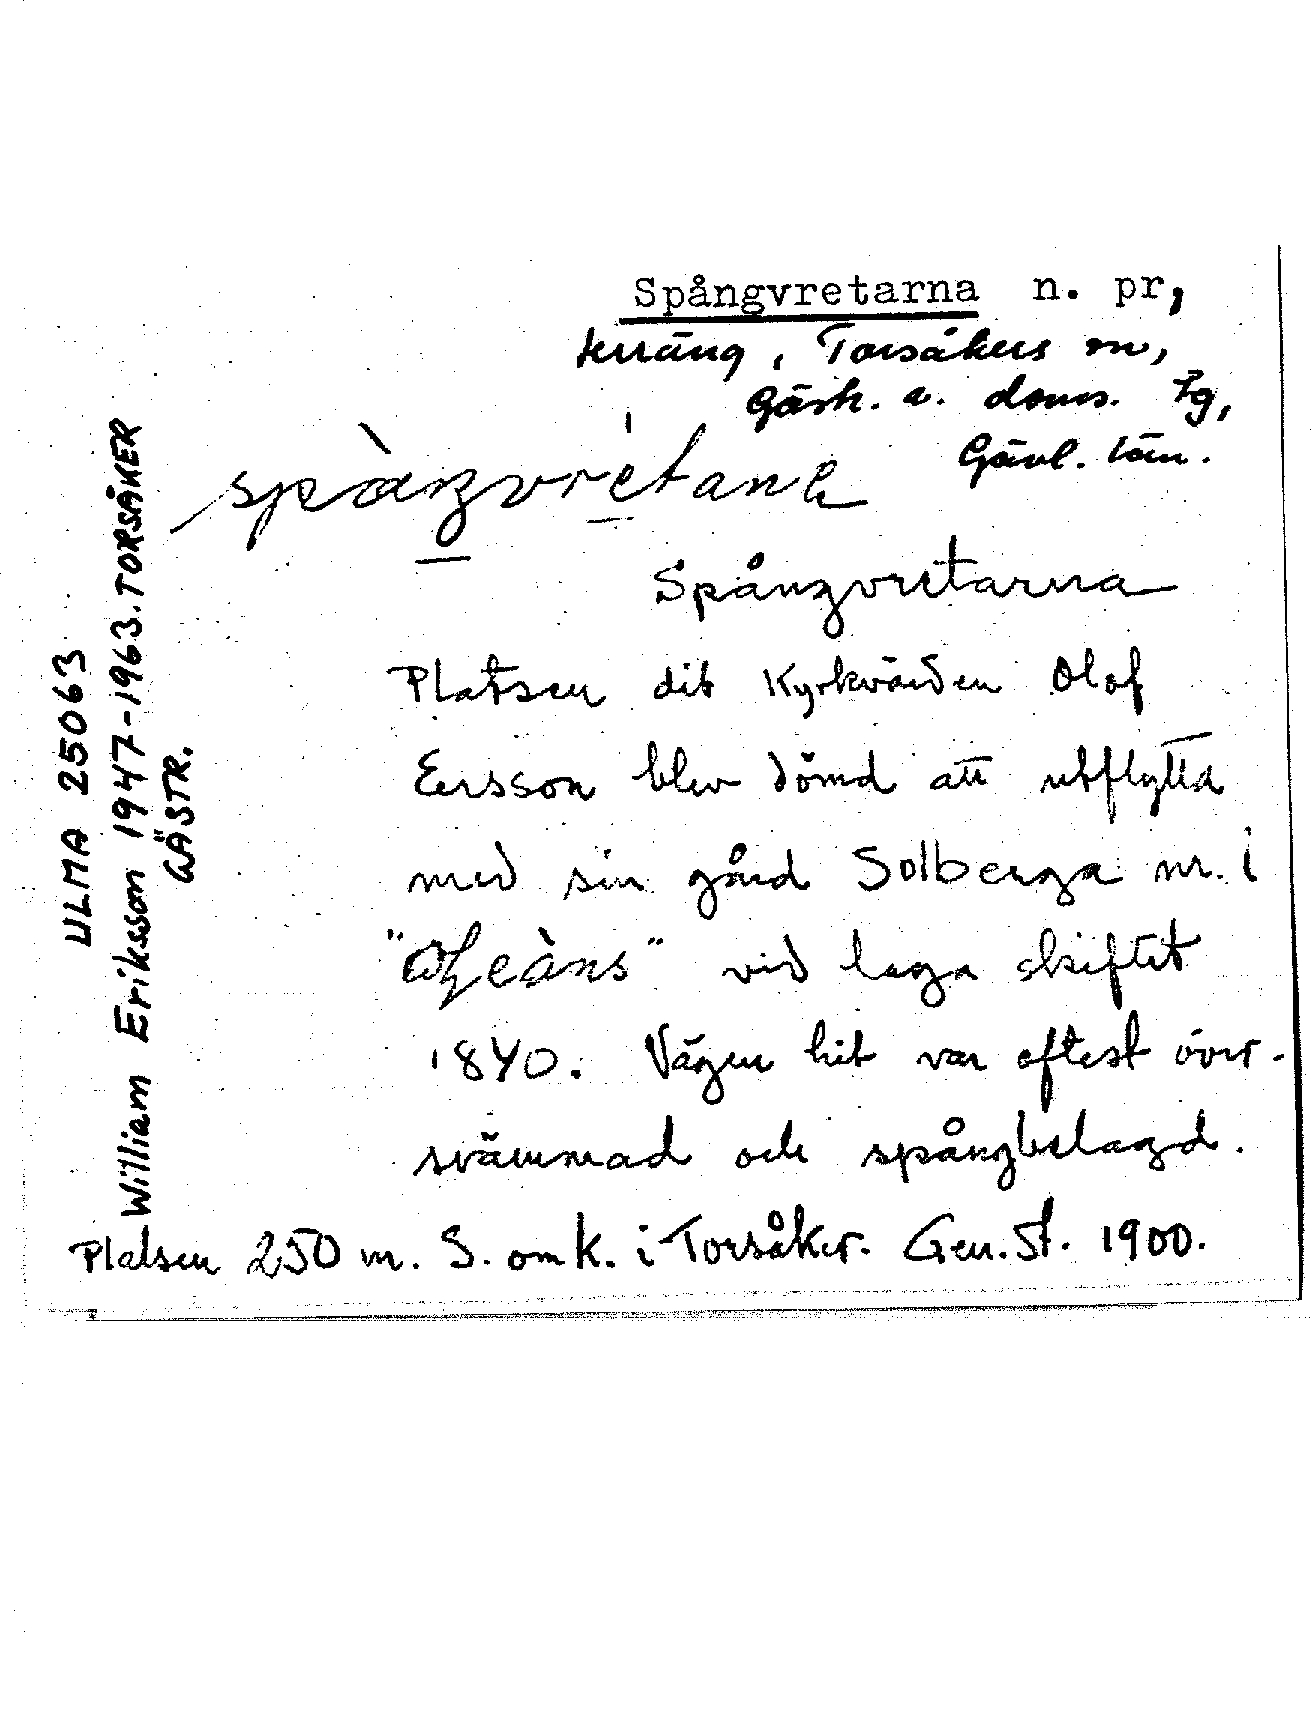 Spångvretarna n. pr,
terräng, Torsåkers sn,
Gästr. ö. doms. tg,
Gävl. län.
Spångvretarna
Platsen dit Kyrkvärden Olof
Ersson blev dömd att utflytta
med sin gård Solberga nr. 1
vid laga skiftet
1840. Vägen hit var oftest över-
svämmad och spångbelagd.
Platsen 250 m. S. om k. i Torsåker. Gen. St. 1900.
ULMA 25063
William Eriksson 1947-1963. TORSÅKER
GÄSTR.